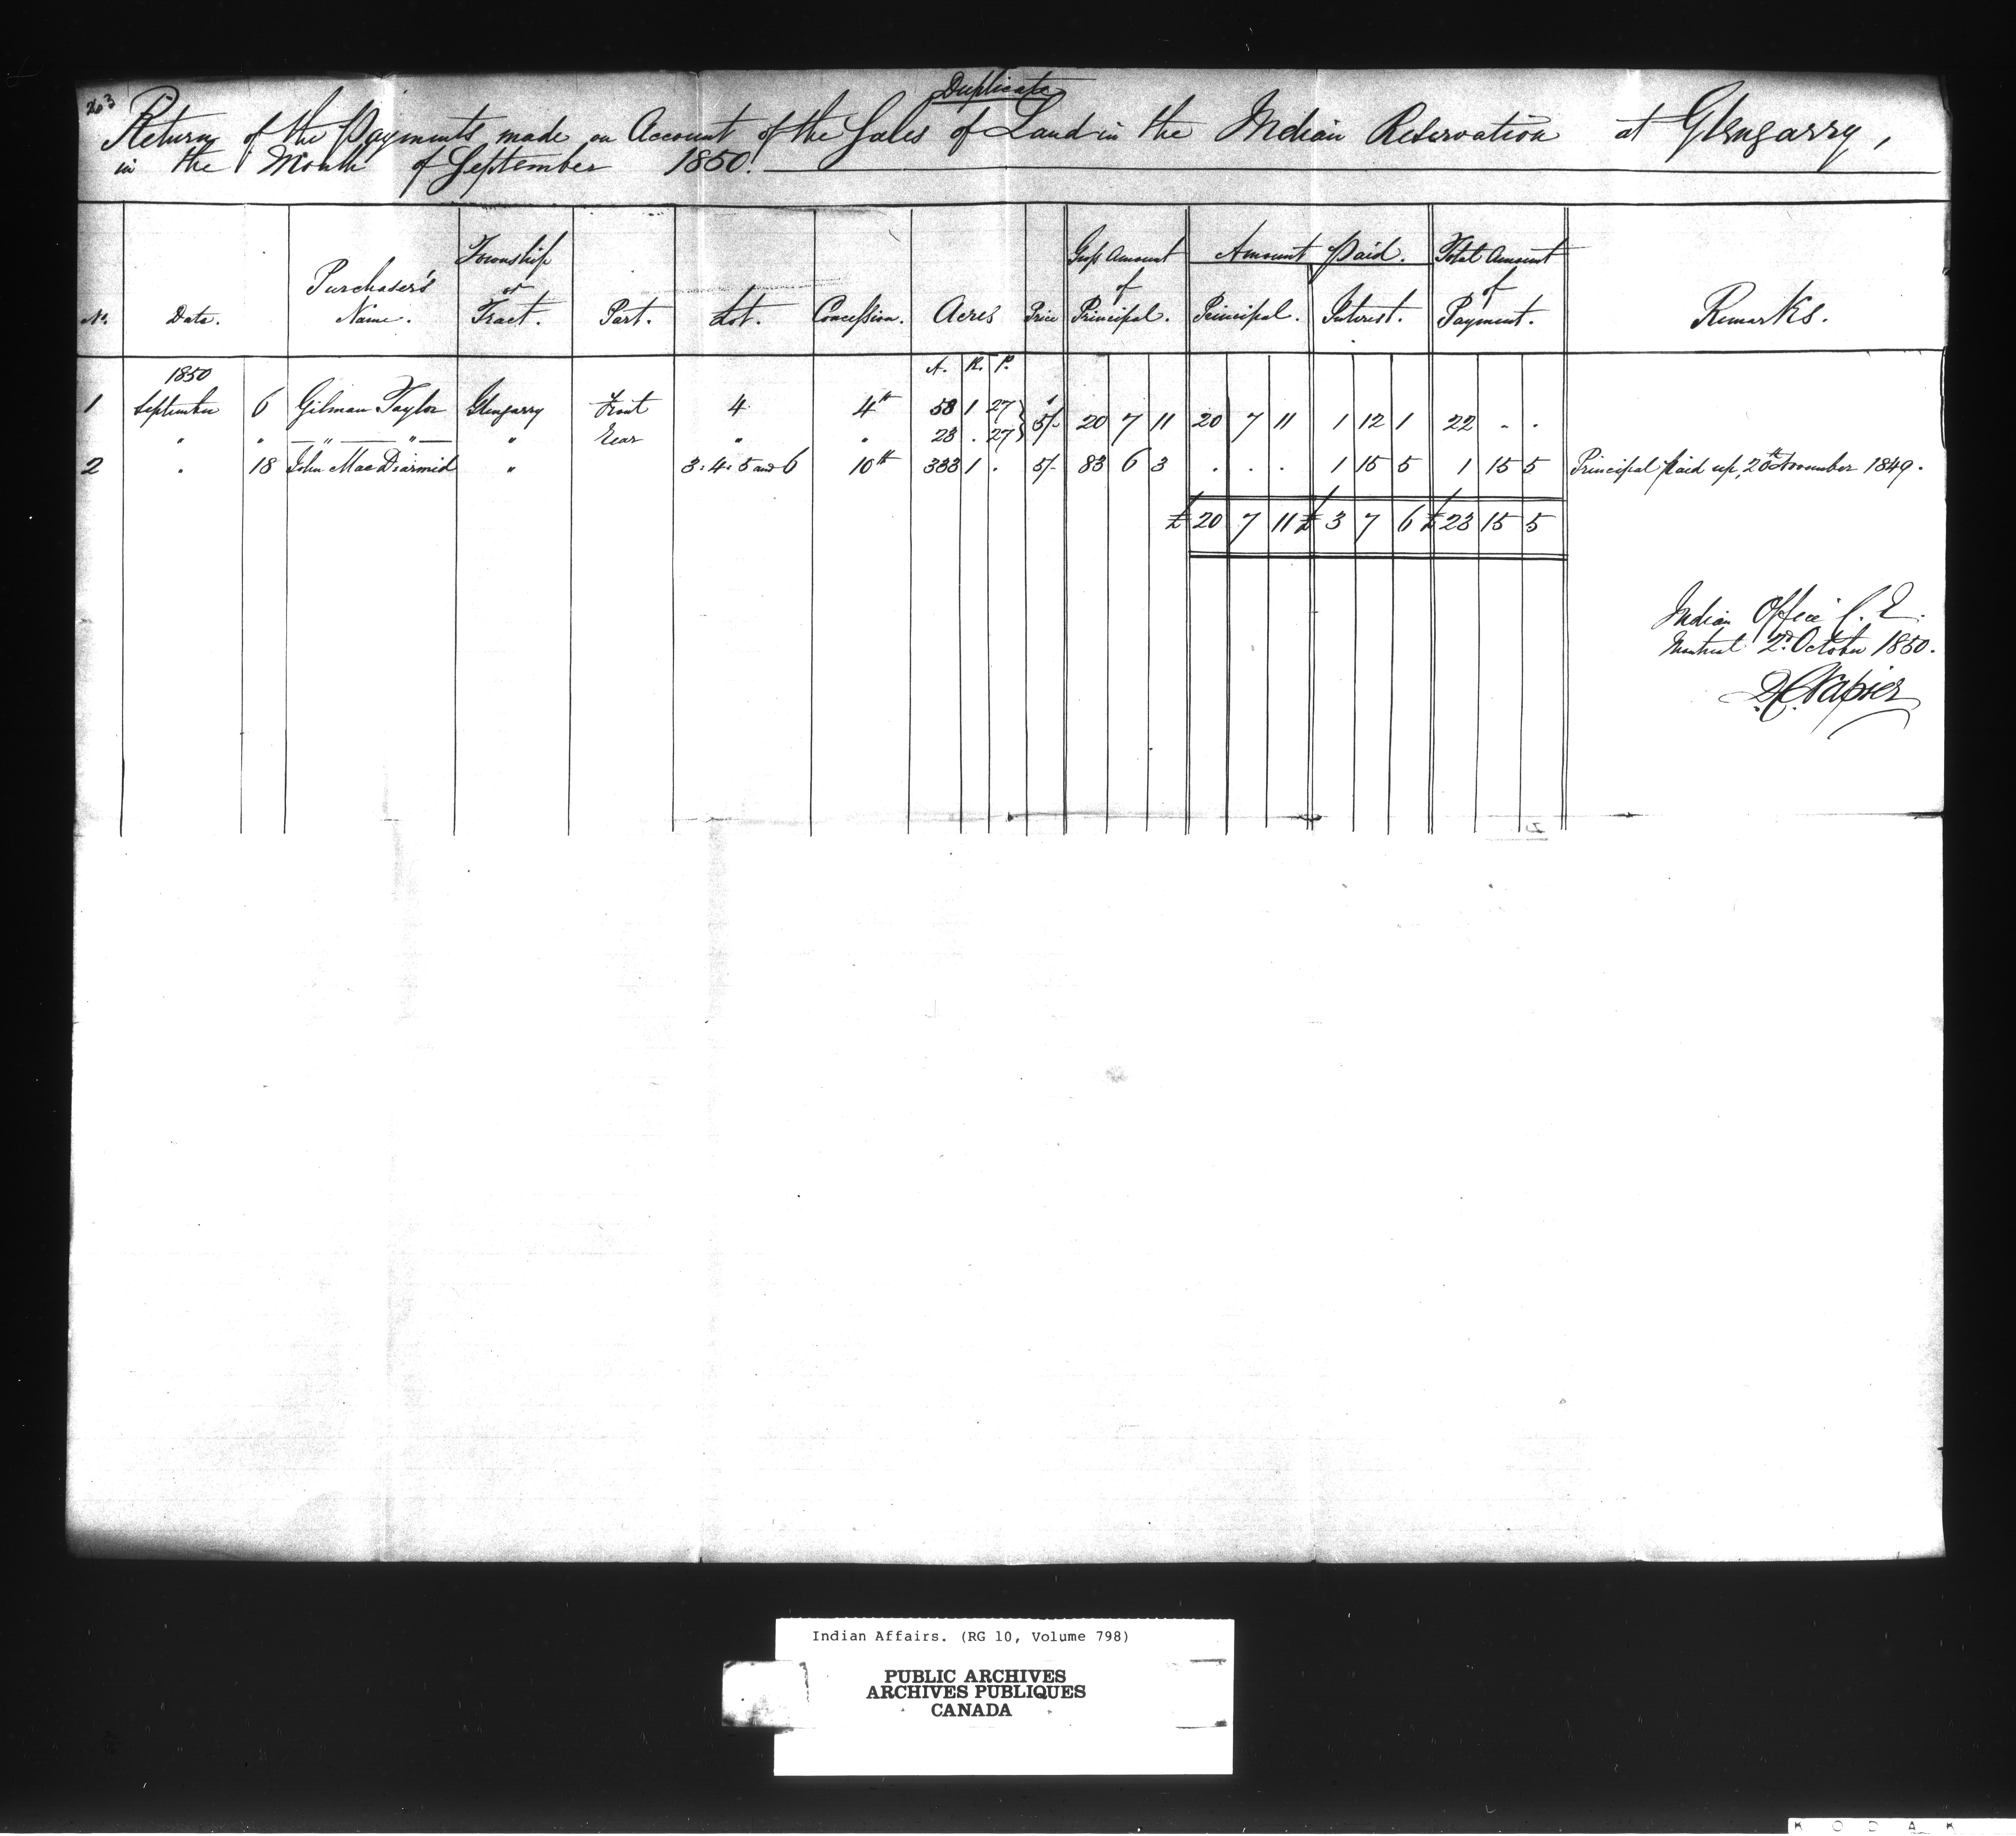 263
Duplicate
Return of the Payments made on Account of the Sales of Land in the Indian Reservation at Glengarry,
in the Month of September 1850.
No. Date. Purchaser's Name. Township or Tract. Part. Lot. Concession. Acres Price Gross Amount of Principal. Amount Paid. Principal. Interest. Total Amount of Payment. Remarks.
1850 A. R. P.
1 September 6 Gilman Taylor Glengarry Front 4 4th 58 1 27 } 5/- 20 7 11 20 7 11 1 12 1 22 . .
" " — " — " — " Rear " " 23 . 27 }
2 " 18 John MacDiarmid " 3. 4. 5 and 6 10th 333 1 . 5/- 83 6 3 . . . 1 15 5 1 15 5 Principal paid up, 20th November 1849.
£ 20 7 11 £ 3 7 6 £ 23 15 5
Indian Office C. E.
Montreal 2d. October 1850.
D. C. Napier
Indian Affairs. (RG 10, Volume 798)
PUBLIC ARCHIVES
ARCHIVES PUBLIQUES
CANADA
KODAK